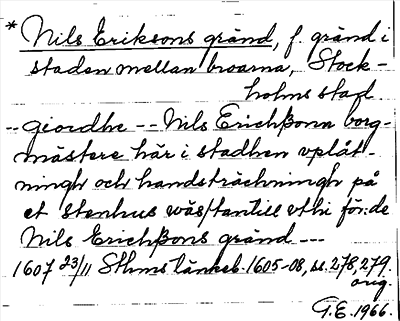 * Nils Eriksons gränd, f. gränd i
staden mellan broarna, Stock-
holms stad
-- giordhe -- Nils Erichßonn borg-
mästere här i stadhen vplåt-
ningh och handsträchningh på
et stenhus wäs/tantill vthi för:de
Nils Erichßons gränd ---
1607 23/11 Sthms tänkeb. 1605-08, s. 278, 279.
orig.
G.E. 1966.